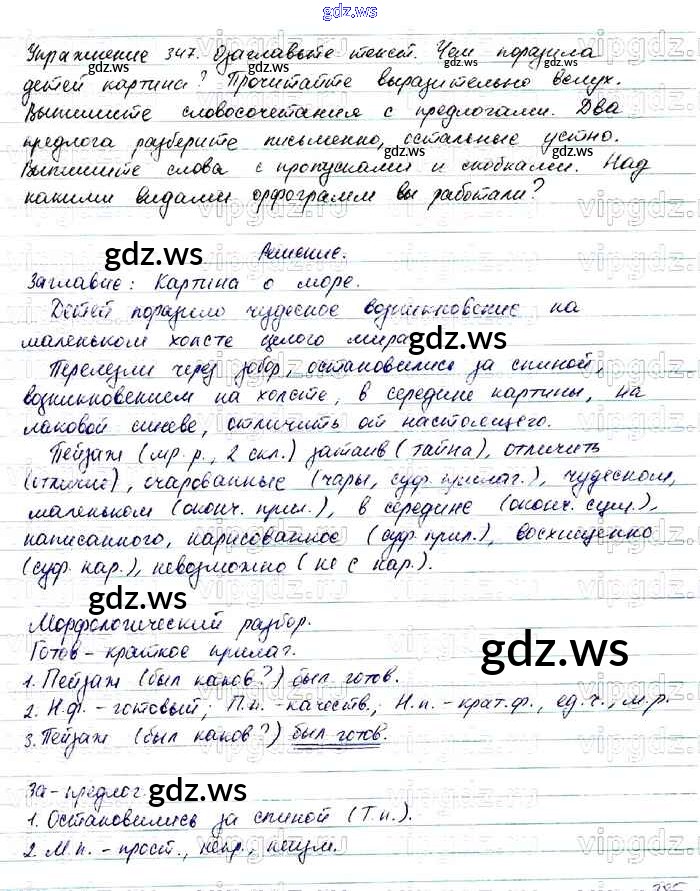 gdz.ws
Упражнение 347. Озаглавьте текст. Чем поразила
детей картина? Прочитайте выразительно вслух.
Выпишите словосочетания с предлогами. Два
предлога разберите письменно, остальные устно.
Выпишите слова с пропусками и скобками. Над
какими видами орфограмм вы работали?
Решение.
Заглавие: Картина о море.
Детей поразило чудесное возникновение на
маленьком холсте целого мира.
Перелезли через забор, остановились за спиной,
возникновением на холсте, в середине картины, на
лаковой синеве, отличить от настоящего.
Пейзаж (мр. р., 2 скл.) затаив (тайна), отличить
(отличие), очарованные (чары, суф. прилаг.), чудесном,
маленьком (оконч. прил.), в середине (оконч. сущ.),
написанного, нарисованное (суф. прил.), восхищенно
(суф. нар.), невозможно (не с нар.).
Морфологический разбор.
Готов - краткое прилаг.
1. Пейзаж (был каков?) был готов.
2. Н.ф. - готовый; П.п. - качеств.; Н.п. - крат. ф., ед. ч., м. р.
3. Пейзаж (был каков?) был готов.
За - предлог.
1. Остановились за спиной (Т.п.).
2. М.п. - прост., непр., неизм.